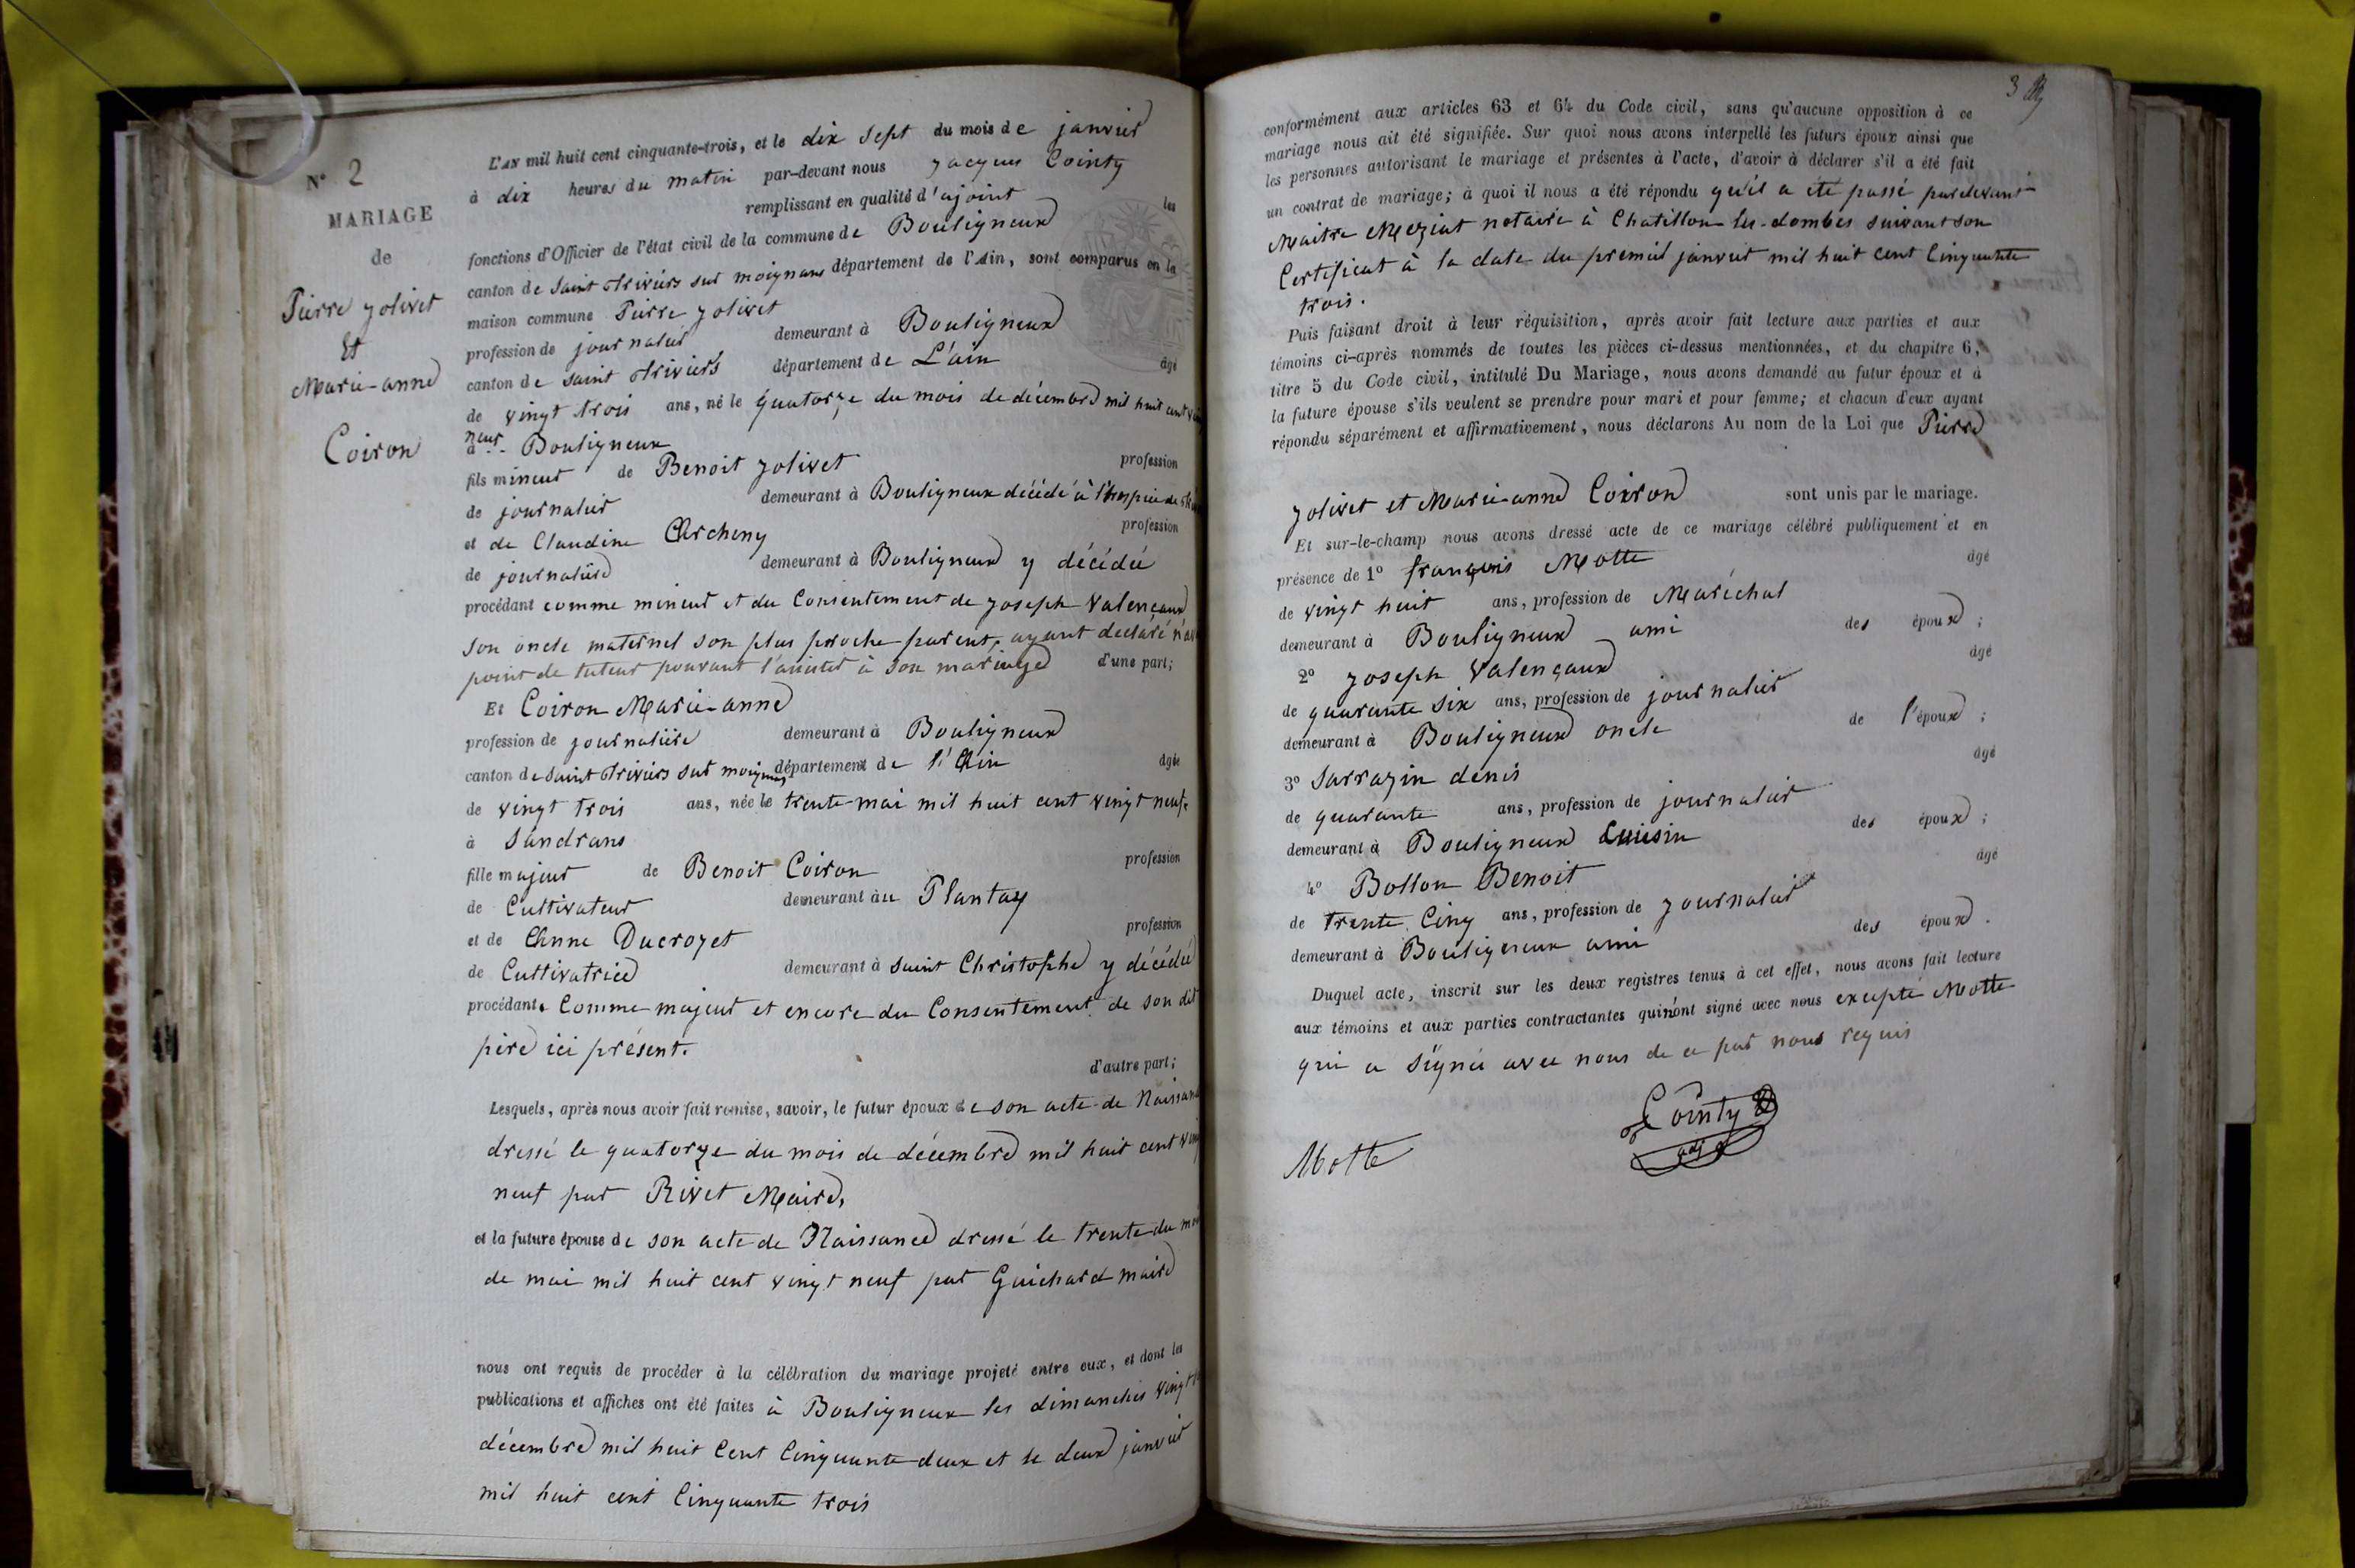 N° 2
MARIAGE
de
Pierre jolivet
Et
Marie-anne
Coiron
L'AN mil huit cent cinquante-trois, et le dix sept du mois de janvier
à dix heures du matin par-devant nous jacques Cointy
remplissant en qualité d'ajoint les
fonctions d'Officier de l'état civil de la commune de Bouligneux
canton de Saint Triviers sur moignans département de l'Ain, sont comparus en la
maison commune Pierre jolivet
profession de journalier demeurant à Bouligneux
canton de saint Triviers département de L'ain âgé
de vingt trois ans, né le quatorze du mois de décembre mil huit cent
neuf
à Bouligneux
fils mineur de Benoit jolivet profession
de journalier demeurant à Bouligneux décédé à l'hospice de
et de Claudine Archeny profession
de journalière demeurant à Bouligneux y décédée
procédant comme mineur et du Consentement de joseph Valençaux
son oncle maternel son plus proche parent, ayant declaré
point de tuteur pouvant l'assister à son mariage d'une part;
Et Coiron Marie-anne
profession de journalière demeurant à Bouligneux
canton de saint Triviers sur moignans département de l'Ain âgée
de vingt trois ans, née le trente mai mil huit cent vingt neuf
à Sandrans
fille majeur de Benoit Coiron profession
de Cultivateur demeurant au Plantay
et de Anne Ducrozet profession
de Cultivatrice demeurant à saint Christophe y décédée
procédante Comme majeur et encore du Consentement de son dit
père ici présent.
d'autre part;
Lesquels, après nous avoir fait remise, savoir, le futur époux de son acte de
dressé le quatorze du mois de décembre mil huit cent
neuf par Rivet Maire,
et la future épouse de son acte de Naissance dressé le trente du
de mai mil huit cent vingt neuf par Guichard maire
nous ont requis de procéder à la célébration du mariage projeté entre eux, et dont les
publications et affiches ont été faites à Bouligneux les dimanches vingt
décembre mil huit Cent Cinquante deux et le deux janvier
mil huit cent Cinquante trois
3
conformément aux articles 63 et 64 du Code civil, sans qu'aucune opposition à ce
mariage nous ait été signifiée. Sur quoi nous avons interpellé les futurs époux ainsi que
les personnes autorisant le mariage et présentes à l'acte, d'avoir à déclarer s'il a été fait
un contrat de mariage; à quoi il nous a été répondu qu'il a été passé pardevant
Maitre Meziat notaire à Chatillon les-dombes suivant son
Certificat à la date du premier janvier mil huit cent Cinquante
trois.
Puis faisant droit à leur réquisition, après avoir fait lecture aux parties et aux
témoins ci-après nommés de toutes les pièces ci-dessus mentionnées, et du chapitre 6,
titre 5 du Code civil, intitulé Du Mariage, nous avons demandé au futur époux et à
la future épouse s'ils veulent se prendre pour mari et pour femme; et chacun d'eux ayant
répondu séparément et affirmativement, nous déclarons Au nom de la Loi que Pierre
jolivet et Marie-anne Coiron sont unis par le mariage.
Et sur-le-champ nous avons dressé acte de ce mariage célébré publiquement et en
présence de 1° françois Motte âgé
de vingt huit ans, profession de Maréchal
demeurant à Bouligneux ami des époux;
2° joseph Valençaux âgé
de quarante six ans, profession de journalier
demeurant à Bouligneux oncle de l'époux;
3° Sarrazin denis âgé
de quarante ans, profession de journalier
demeurant à Bouligneux des époux;
4° Bollon Benoit âgé
de trente Cinq ans, profession de journalier
demeurant à Bouligneux ami des époux.
Duquel acte, inscrit sur les deux registres tenus à cet effet, nous avons fait lecture
aux témoins et aux parties contractantes qui n'ont signé avec nous excepté Motte
qui a signé avec nous de ce par nous requis
Cointy
adj
Motte